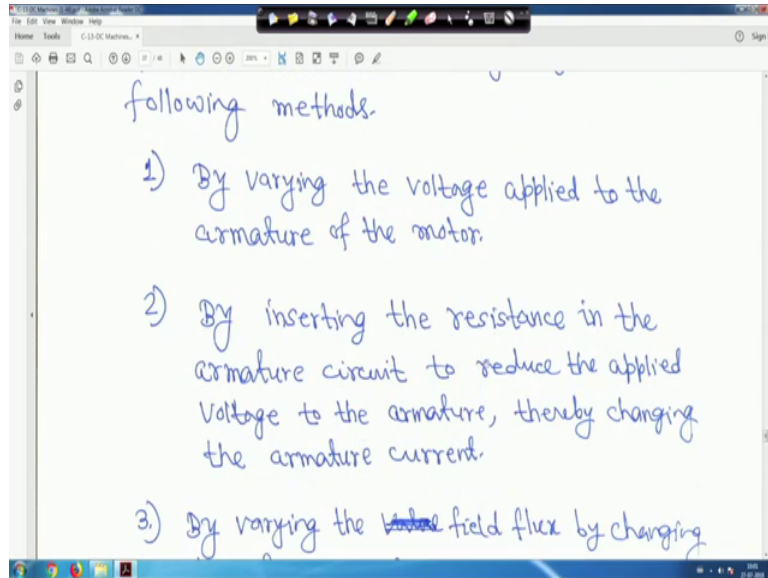 File Edit View Window Help
Home Tools C-13-DC Machines... ×
Sign
following methods.
1) By varying the voltage applied to the
armature of the motor.
2) By inserting the resistance in the
armature circuit to reduce the applied
voltage to the armature, thereby changing
the armature current.
3.) By varying the field flux by changing